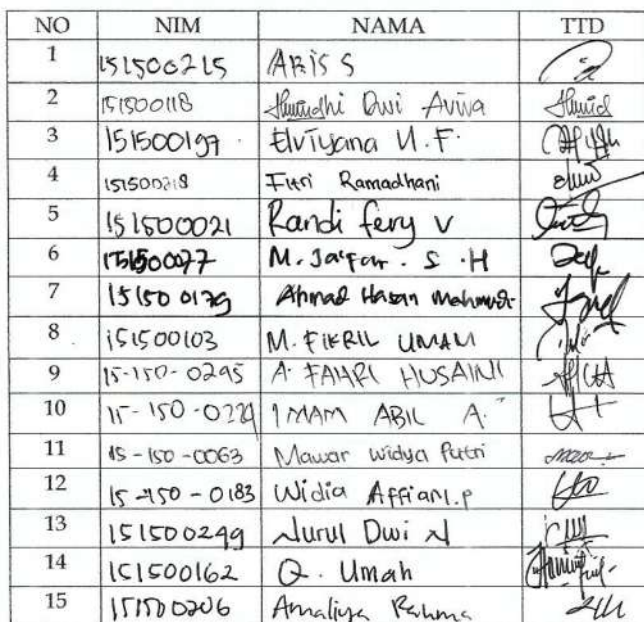 NO NIM NAMA TTD
1 151500215 ARIS S
2 151500118 Dwi Aviva
3 151500197 Elviyana U.F.
4 151500218 Fitri Ramadhani
5 151500021 Randi fery v
6 151500077 M. Ja'far . S . H
7 151500179 Ahmad Hasan Mahmudi
8 151500103 M. FIKRIL UMAM
9 15-150-0295 A. FAHRI HUSAINI
10 15-150-0229 IMAM ABIL A.
11 15-150-0063 Mawar Widya Putri
12 15-150-0183 Widia Affiani.p
13 151500249 Nurul Dwi N
14 151500162 Q. Umah
15 151500206 Amaliya Rahma